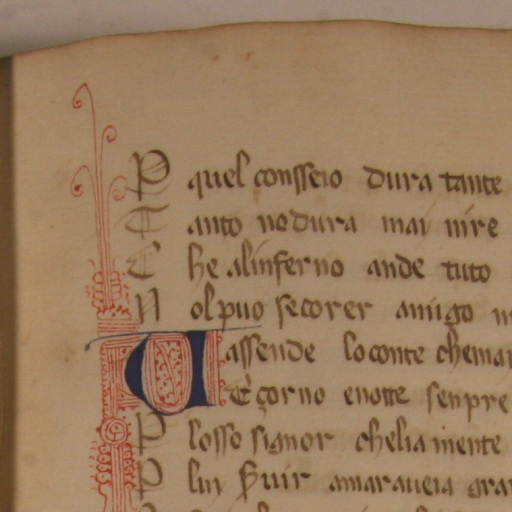 P quel consseio dura tante
T anto no dura mai nire
C he alinferno ande tuto
N ol puo secorer amigo
V assende lo conte chemar
E çorno enotte senpre
P losso signor chelia mente
P lui servir amaraveia gra